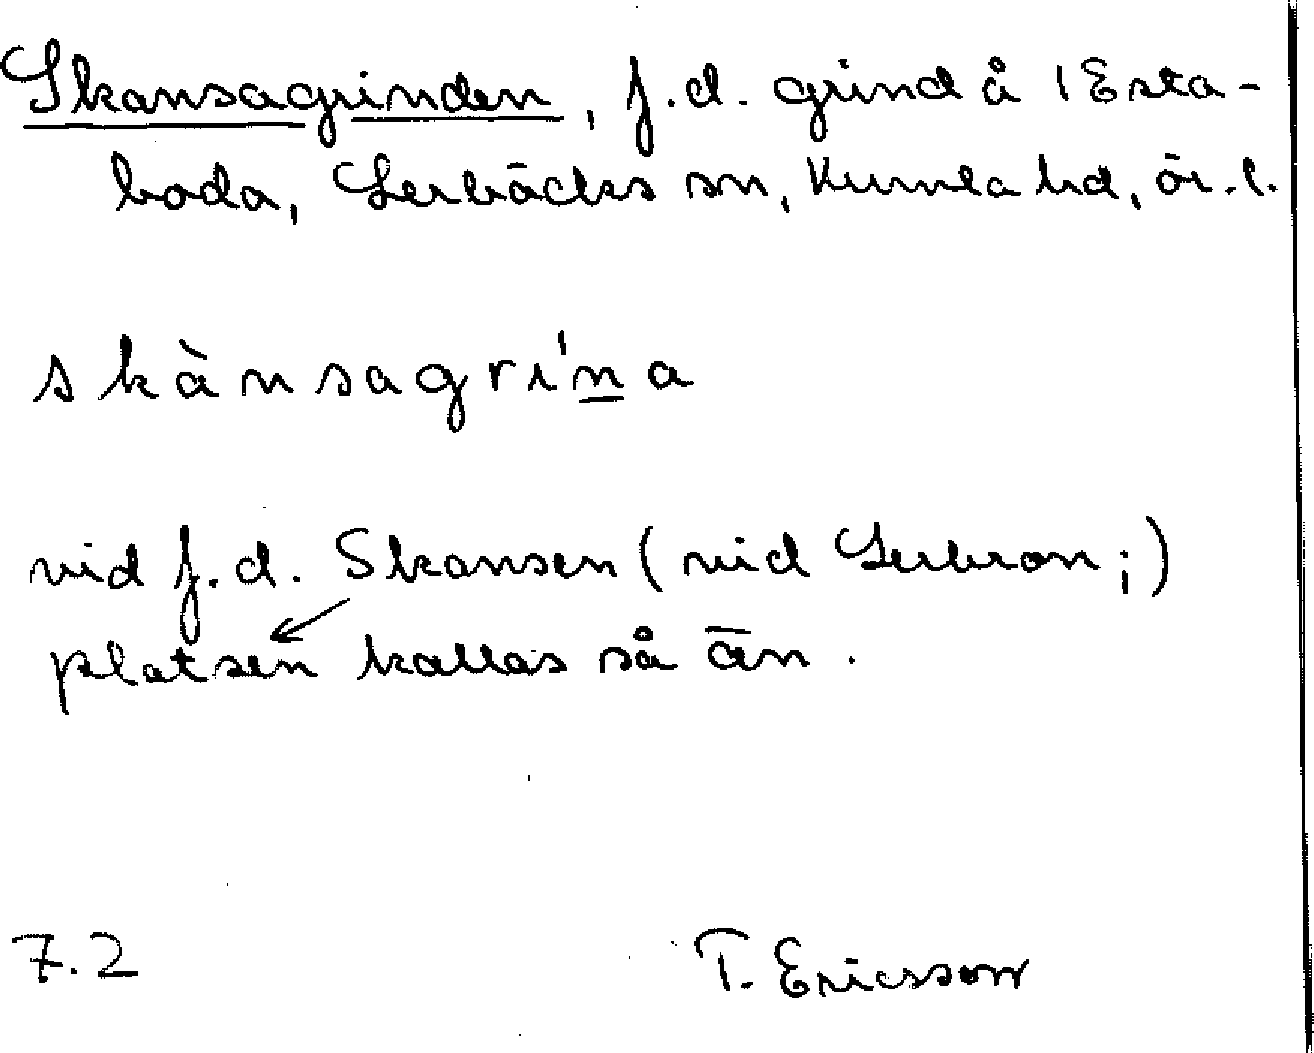 Skansagrinden, f.d. grind å 1 Esta-
boda, Lerbäcks sn, Kumla hd, ör. l.
skànsagrı'n̲a
vid f.d. Skansen (vid Lerbron;)
platsen kallas så än.
7.2
T. Ericsson